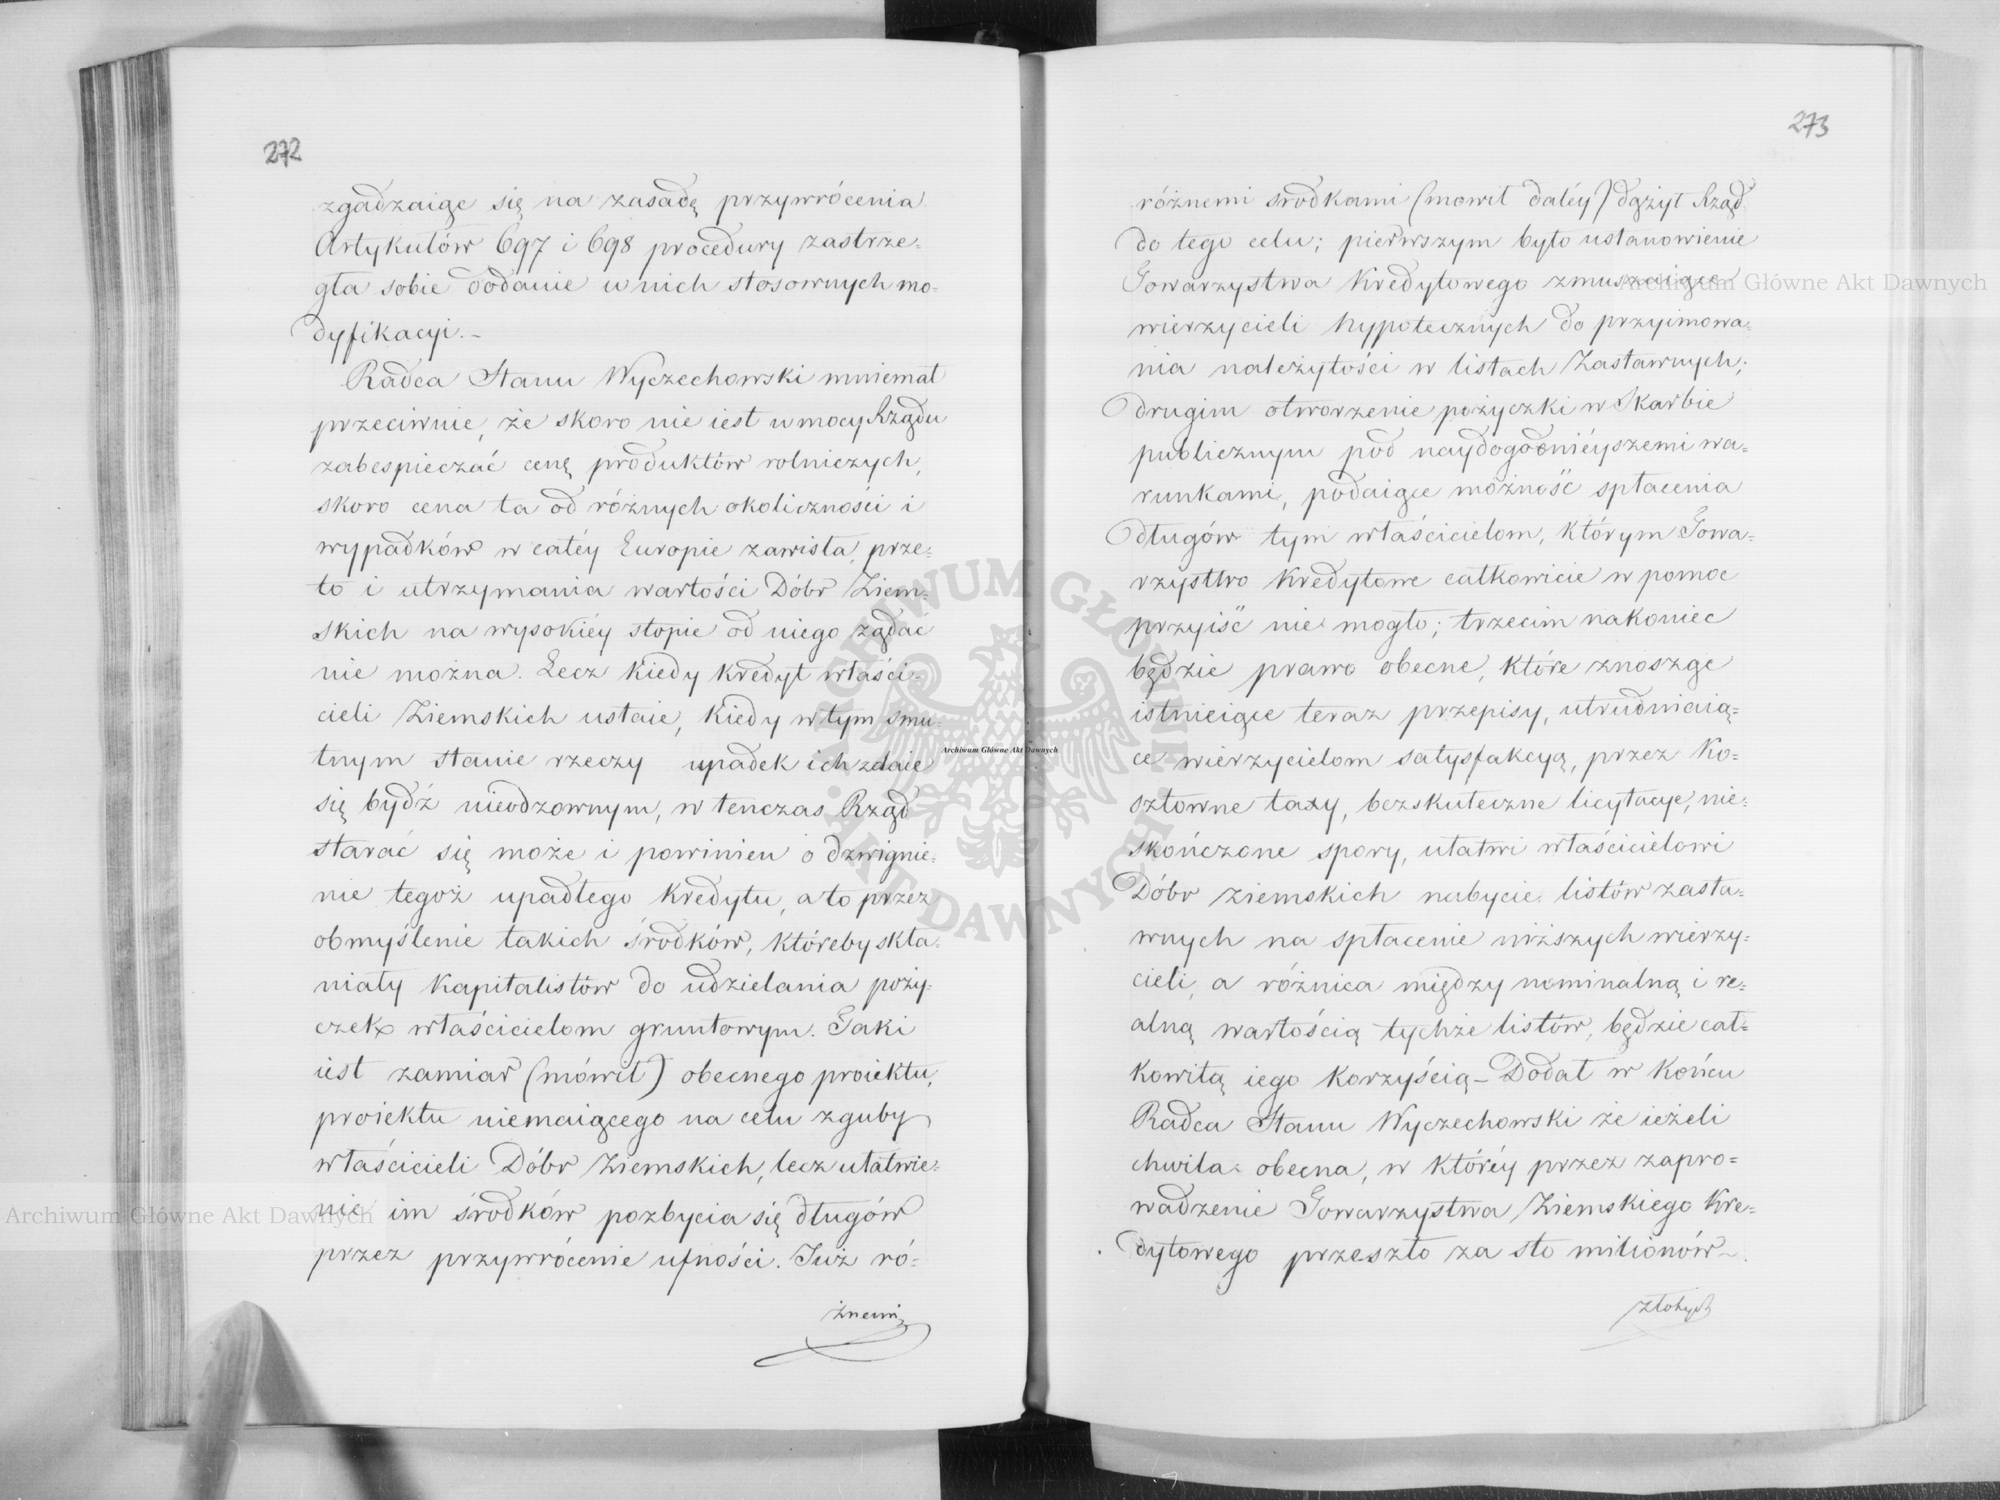 272
zgadzaiąc się na zasadę przywrócenia
Artykułów 697 i 698 procedury zastrze=
gła sobie dodanie w nich stosownych mo=
dyfikacyi.–
Radca Stanu Wyczechowski mniemał
przeciwnie, że skoro nie iest w mocy Rządu
zabespieczać cenę produktów rolniczych,
skoro cena ta od różnych okoliczności i
wypadków w całéy Europie zawisła, prze=
to i utrzymania wartości Dóbr Ziem=
skich na wysokiéy stopie od niego żądać
nie można. Lecz kiedy kredyt właści=
cieli Ziemskich ustaie, kiedy w tym smu=
tnym stanie rzeczy upadek ich zdaie
się bydź nieodzownym, w tenczas Rząd
starać się może i powinien o dzwignie=
nie tegoż upadłego kredytu, a to przez
obmyślenie takich środków, któreby skła=
niały kapitalistów do udzielania poży=
czek właścicielom gruntowym. Taki
iest zamiar (mówił) obecnego proiektu,
proiektu niemaiącego na celu zguby
właścicieli Dóbr Ziemskich, lecz ułatwie=
nie im środków pozbycia się długów
przez przywrócenie ufności. Już ró=
żnemi
273
różnemi srodkami (mowił daléy) dążył Rząd
do tego celu; pierwszym było ustanowienie
Towarzystwa Kredytowego zmuszaiące
wierzycieli hypotecznych do przyimowa=
nia należytości w listach Zastawnych;
drugim otworzenie pożyczki w Skarbie
publicznym pod naydogodnieyszemi wa=
runkami, podaiące możność spłacenia
długów tym właścicielom, którym Towa=
rzystwo Kredytowe całkowicie w pomoc
przyiść nie mogło; trzecim nakoniec
będzie prawo obecne, które znosząc
istnieiące teraz przepisy, utrudniaią=
ce wierzycielom satysfakcyą, przez ko=
sztowne taxy, bezskuteczne licytacye, nie=
skończone spory, ułatwi właścicielowi
Dóbr ziemskich nabycie listów zasta=
wnych na spłacenie niższych wierzy=
cieli, a różnica między nominalną i re=
alną wartością tychże listów, będzie cał=
kowitą iego korzyścią – Dodał w końcu
Radca Stanu Wyczechowski że ieżeli
chwila obecna, w któréy przez zapro=
wadzenie Towarzystwa Ziemskiego Kre=
dytowego przeszło za sto milionów
złotych
Archiwum Główne Akt Dawnych
Archiwum Główne Akt Dawnych
Archiwum Główne Akt Dawnych
ARCHIWUM GŁÓWNE
AKT DAWNYCH